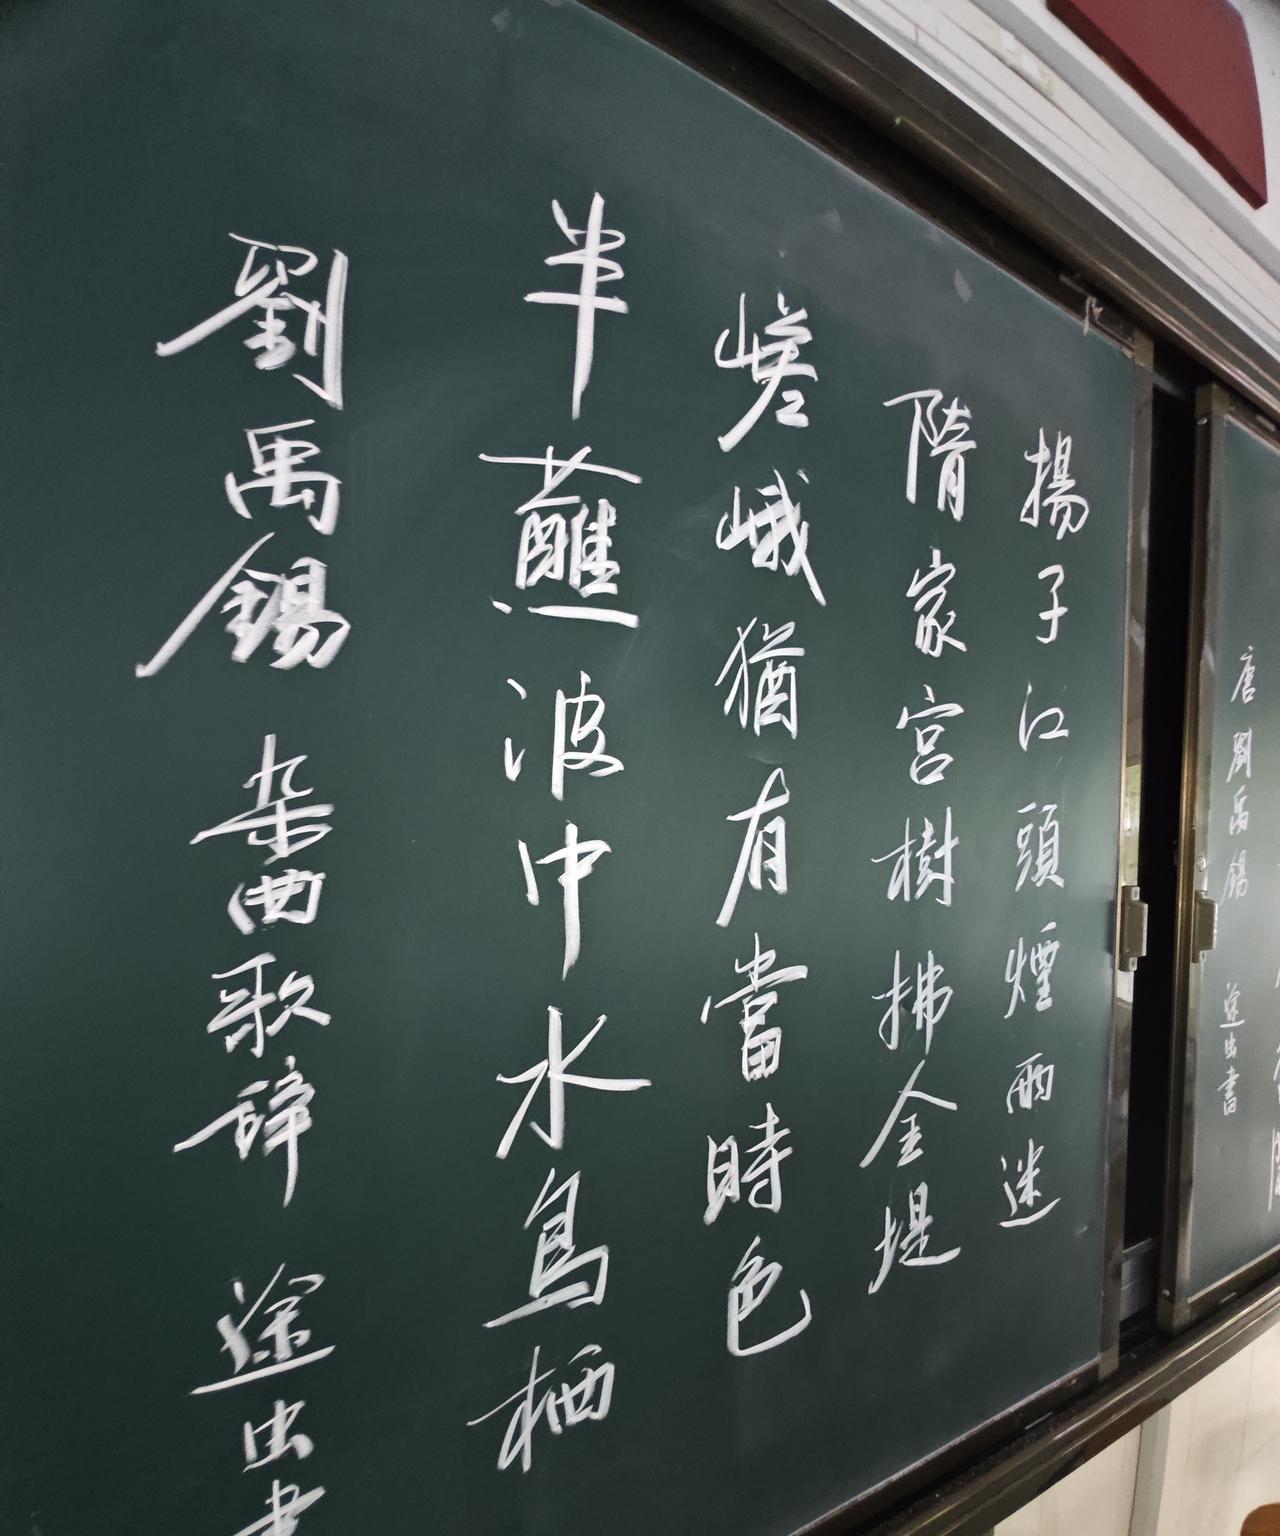 唐劉禹錫 途出書
揚子江頭煙雨迷
隋家宮樹拂金堤
嵯峨猶有當時色
半蘸波中水鳥栖
劉禹錫 杂曲歌辞 途出書